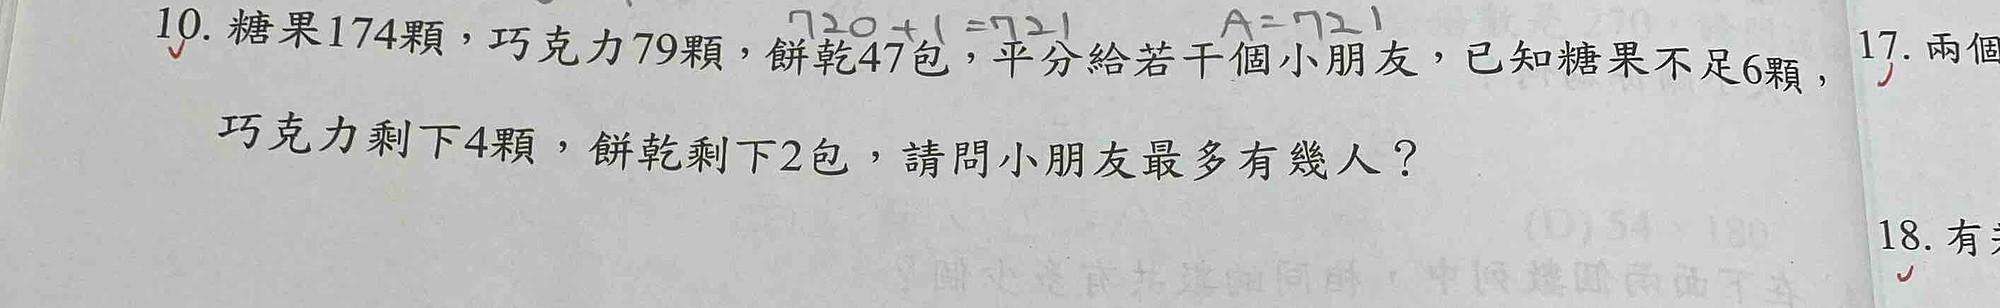 720+1=721 A=721
10. 糖果174顆，巧克力79顆，餅乾47包，平分給若干個小朋友，已知糖果不足6顆，
巧克力剩下4顆，餅乾剩下2包，請問小朋友最多有幾人？
17. 兩個
18. 有